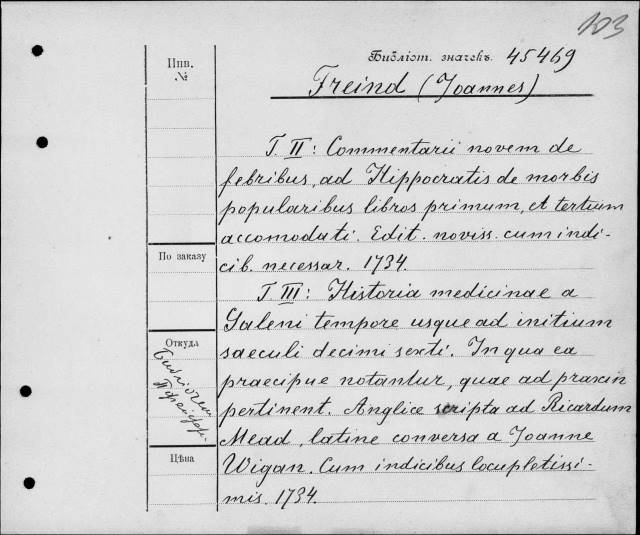 103
Библіот. значекъ. 45469
Инв.
№
Freind (Joannes)
T. II: Commentarii novem de
febribus, ad Hippocratis de morbis
popularibus libros primum, et tertium
accomodati. Edit. noviss. cum indi-
cib. necessar. 1734.
По заказу
T. III: Historia medicinae a
Galeni tempore usque ad initium
saeculi decimi sexti. In qua ea
praecipue notantur, quae ad praxin
pertinent. Anglice scripta ad Ricardum
Mead, latine conversa a Joanne
Wigan. Cum indicibus locupletissi-
mis. 1734.
Откуда
Цѣна